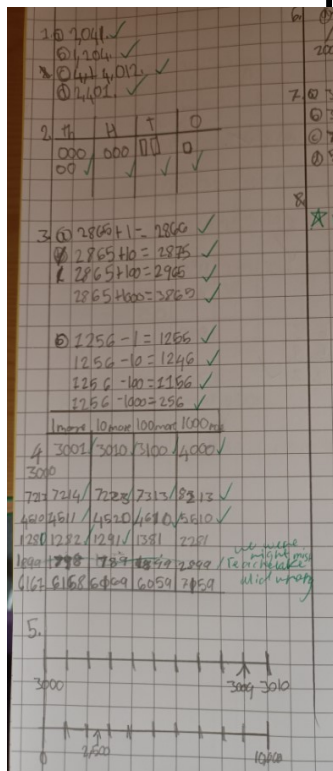 1. a 2,041. ✓
b 1,204. ✓
c 4,012. ✓
d 2,401. ✓
2. Th H T O
000 000 00 0
00
3. a 2865+1= 2866 ✓
2865+10= 2875 ✓
2865+100=2965 ✓
2865+1000=3865 ✓
b 1256-1=1255 ✓
1256-10=1246 ✓
1256-100=1156 ✓
1256-1000=256 ✓
1 more 10 more 100 more 1000 more
4. 3001 3010 3100 4000 ✓
3000
7213 7214 7223 7313 8213 ✓
4510 4511 4520 4610 5510 ✓
1281 1282 1291 1381 2281
6167 6168 6059 7159
we were
might
did wrong
5.
3000 3009 3010
0 2,500 10,000
6.
200
7. a 3
b
c 7
d 8
8.